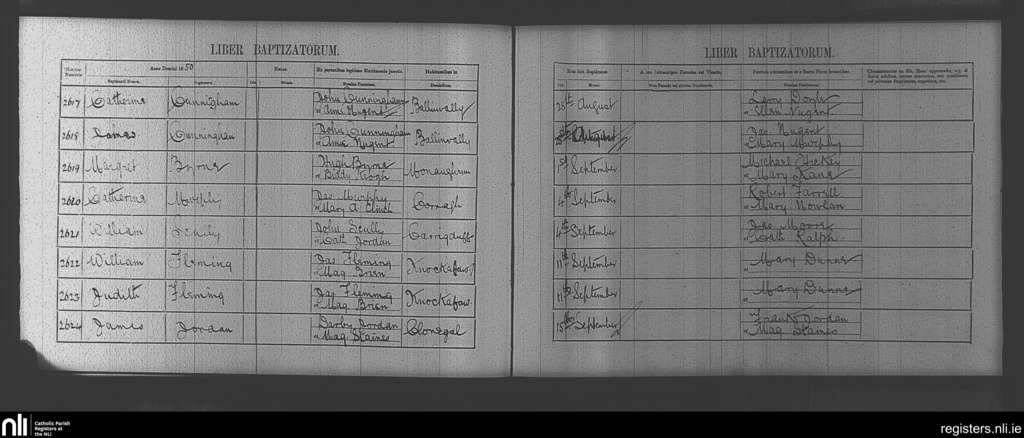 LIBER BAPTIZATORUM.
Anno Domini 1850
Habitantium in
2617 Catherine Cunnigham John Cunningham Ballinvally
" Anne Nugent
2618 James Cunningham John Cunningham Ballinvally
" Anne Nugent
2619 Margret Byrne Hugh Byrne Monaughrim
" Biddy Keogh
2620 Catherine Murphy Jas Murphy Cornagh
" Mary A Clinch
2621 William Scully John Scully Carrigduff
" Cath Jordan
2622 William Fleming Jas Fleming Knockafaw
" Mag Brien
2623 Judith Fleming Jas Fleming Knockafaw
" Mag Brien
2624 James Jordan Darby Jordan Clonegal
" Mag Staines
LIBER BAPTIZATORUM.
25th August Doyle
" Ellen Nugent
August Jas Nugent
" Mary Murphy
1st September Michael Hickey
" Mary Kane
4th September Robert Farrell
" Mary Nowlan
4th September Jas Moore
" Cath Ralph
11th September
" Mary Dunne
11th September Mary Dunne
"
15th September Frank Jordan
" Mag Staines
nli
Catholic Parish
Registers at
the NLI
registers.nli.ie